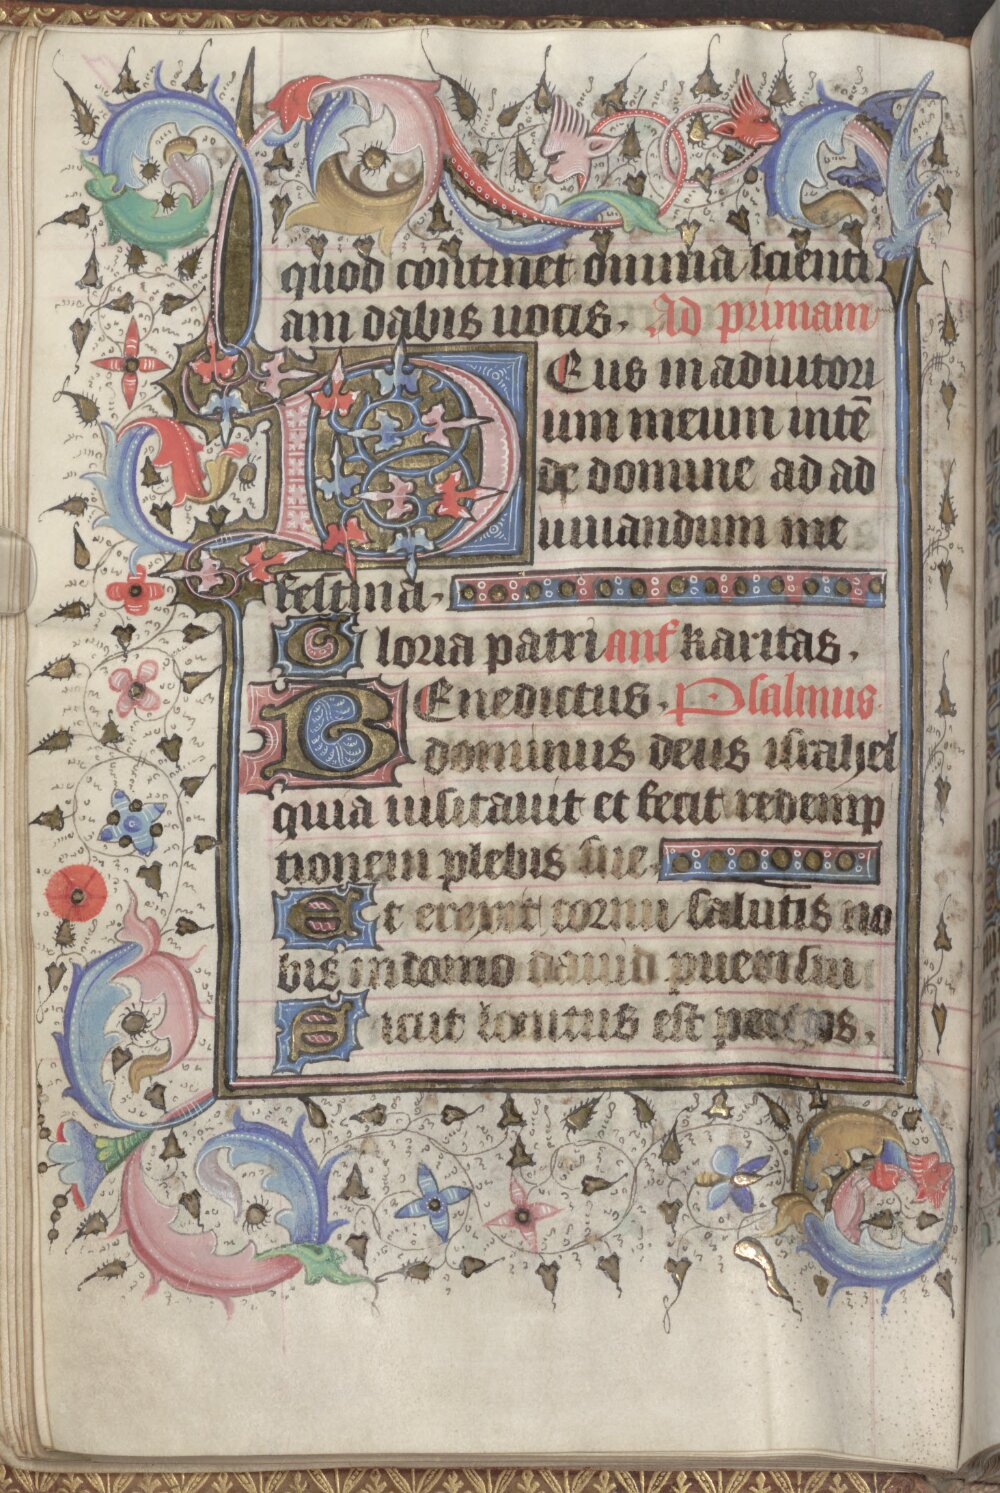 quod continet omnia scienti
am dabis uocis. Ad primam
DEus in adiutori
um meum intē
de domine ad ad
iuuandum me
festina.
Gloria patri anf karitas.
BEnedictus. Psalmus
dominus deus israhel
quia uisitauit et fecit redemp
tionem plebis sue.
Et erexit cornu salutis no
bis in domo dauid pueri sui
Sicut locutus est per os.